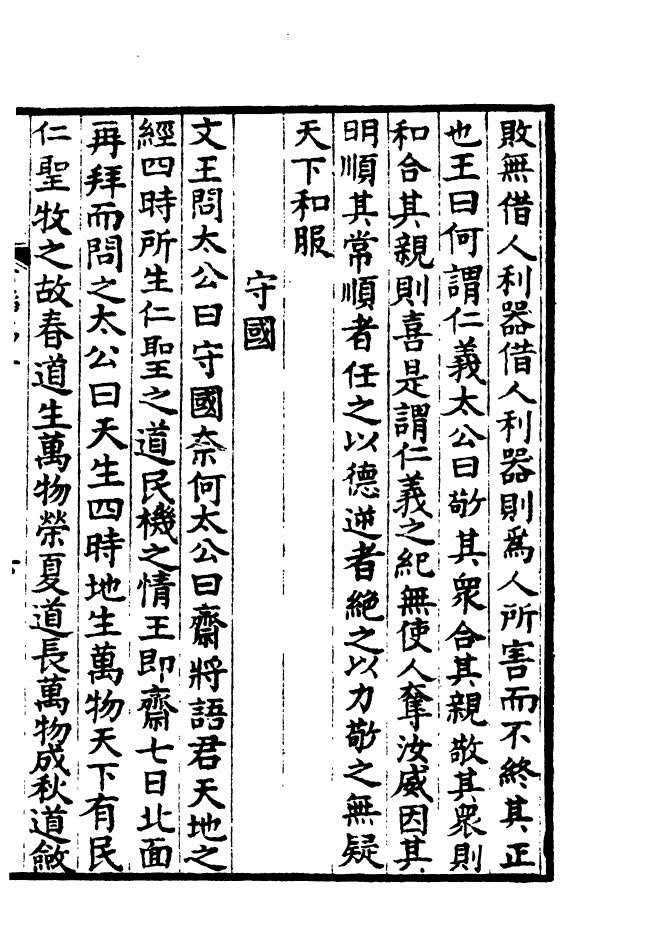 敗無借人利器借人利器則爲人所害而不終其正
也王曰何謂仁義太公曰敬其衆合其親敬其衆則
和合其親則喜是謂仁義之紀無使人奪汝威因其
明順其常順者任之以德逆者絶之以力敬之無疑
天下和服
守國
文王問太公曰守國奈何太公曰齋將語君天地之
經四時所生仁聖之道民機之情王即齋七日北面
再拜而問之太公曰天生四時地生萬物天下有民
仁聖牧之故春道生萬物榮夏道長萬物成秋道斂